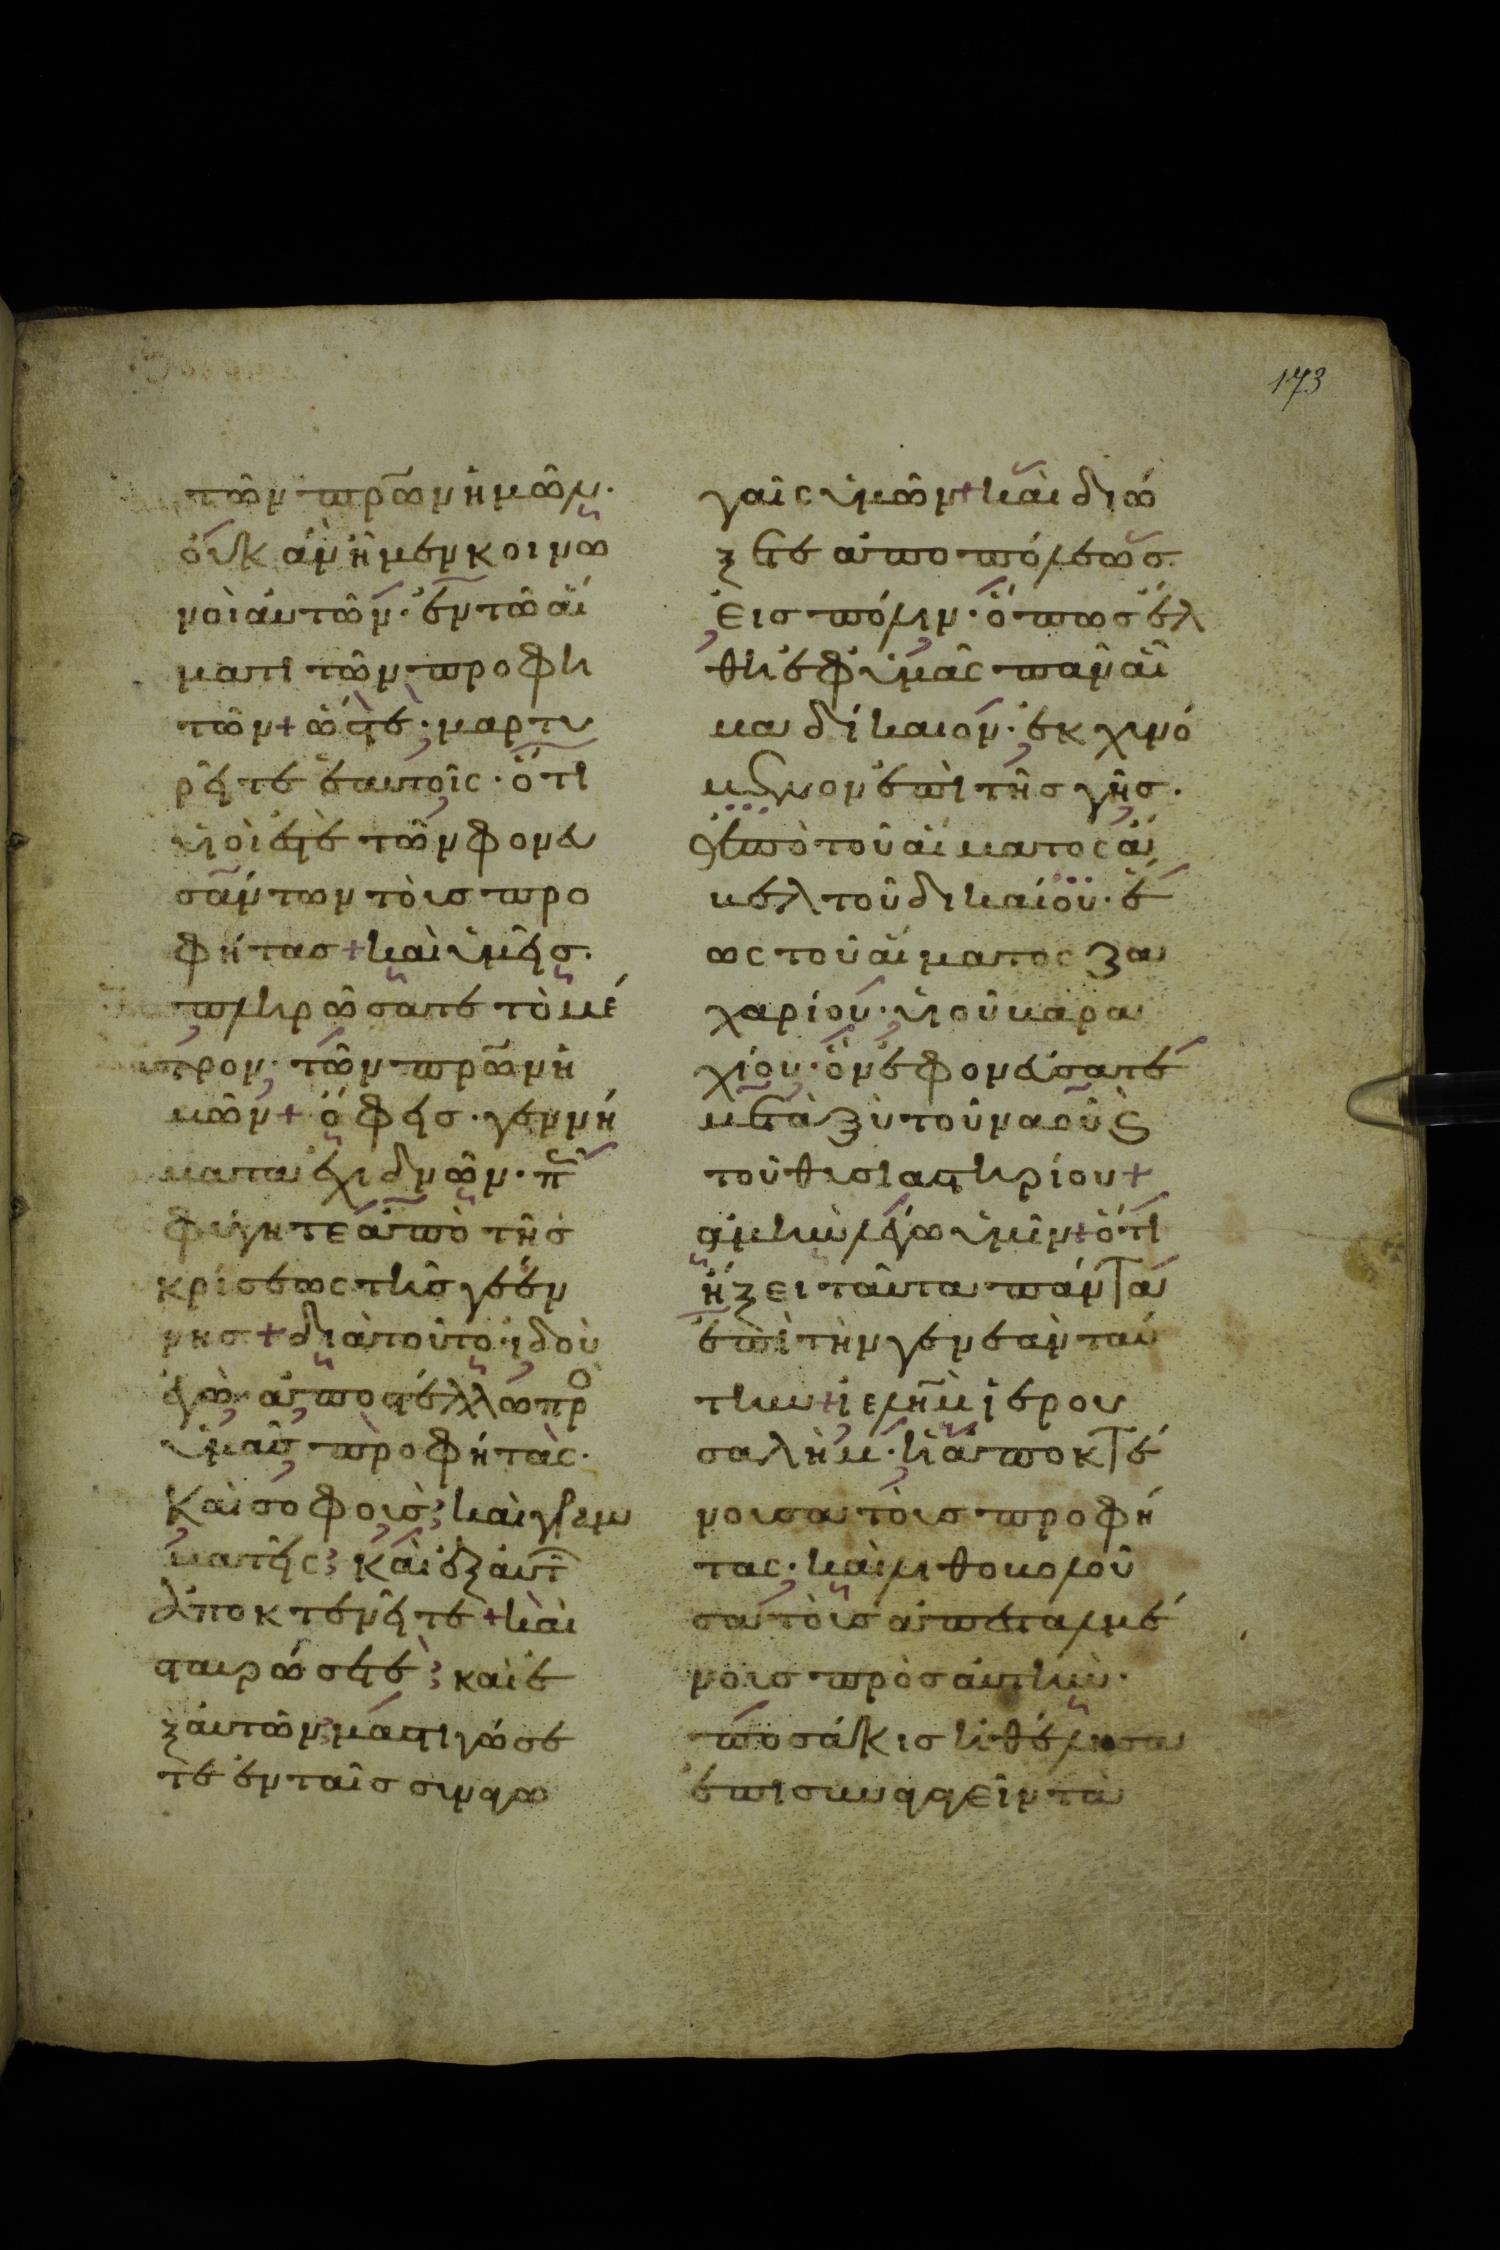 173
τῶν πρ̅ων ἡμῶν·
οὐκ ἂν ἦμεν κοινω
νοὶ αὐτῶν· ἐν τῶ αἵ
ματι τῶν προφη
τῶν + ὥστε· μαρτυ
ρεῖτε ἑαυτοῖς· ὅτι
υἱοί ἐστε τῶν φονευ
σάντων τοὺς προ
φήτας + καὶ ὑμεῖς·
πληρώσατε τὸ μέ
τρον· τῶν πρ̅ων ἡ
μῶν + ὄφεις· γεννή
ματα ἐχιδνῶν· π
φύγητε ἀπὸ τῆς
κρίσεως τῆς γεέν
νης + διὰ τοῦτο ἰδοὺ
ἐγὼ ἀποστέλλω πρ
ὑμᾶς προφήτας·
καὶ σοφούς; καὶ γραμ
ματεῖς; καὶ ἐξ αυτ
ἀποκτενεῖτε + καὶ
σταυρώσετε; καὶ ἐ
ξ αὐτῶν μαστιγώσε
τε ἐν ταῖς συναγω
γαῖς ὑμῶν + καὶ διώ
ξετε ἀπὸ πόλεως
εἰς πόλιν· ὅπως ἔλ
θη ἐφ ὑμᾶς πᾶν αἷ
μα δίκαιον· ἐκχυνό
μενον ἐπὶ τῆς γῆς·
ἀπὸ τοῦ αἵματος ἅ
βελ τοῦ δικαίου· ἕ
ως τοῦ αἵματος ζα
χαρίου· υἱοῦ βαρα
χίου· ὃν ἐφονεύσατε
μεταξὺ τοῦ ναοῦ ϗ
τοῦ θυσιαστηρίου +
ἀμὴν λέγω ὑμῖν + ὅτι
ἥξει ταῦτα πάντα
ἐπὶ τὴν γενεὰν ταύ
την + ἱελημ ἱερου
σαλήμ· ἡ ἀποκτέ
νουσα τοὺς προφή
τας· καὶ λιθοβολοῦ
σα τοὺς ἀπεσταλμέ
νους πρὸς αὐτήν·
ποσάκις ἠθέλησα
ἐπισυναγαγεῖν τὰ